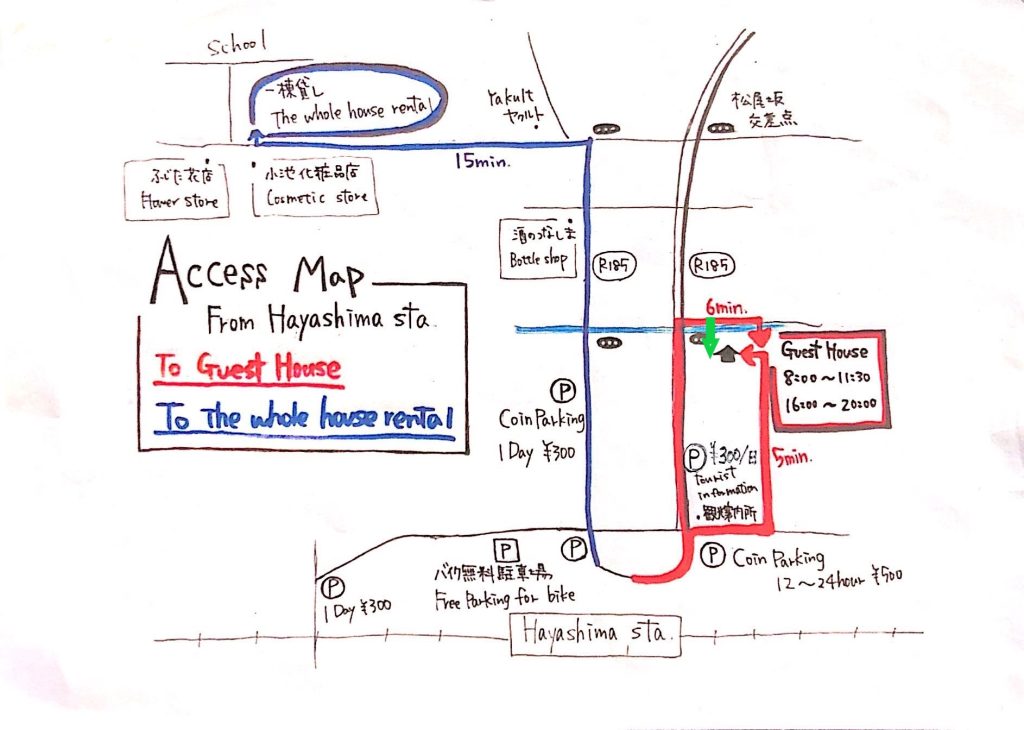 School
一棟貸し
The whole house rental
Yakult
ヤクルト
松尾坂
交差点
15min.
ふじた花店
Flower store
小池化粧品店
Cosmetic store
酒のつなしま
Bottle shop
R185
R185
Access Map
From Hayashima sta.
To Guest House
To The whole house rental
6min.
Guest House
8:00～11:30
16:00～20:00
P
Coin Parking
1 Day ¥300
P ¥300/日
tourist
information
・観光案内所
5min.
P
1 Day ¥300
P
バイク無料駐車場
Free Parking for bike
P
P Coin Parking
12～24hour ¥500
Hayashima sta.